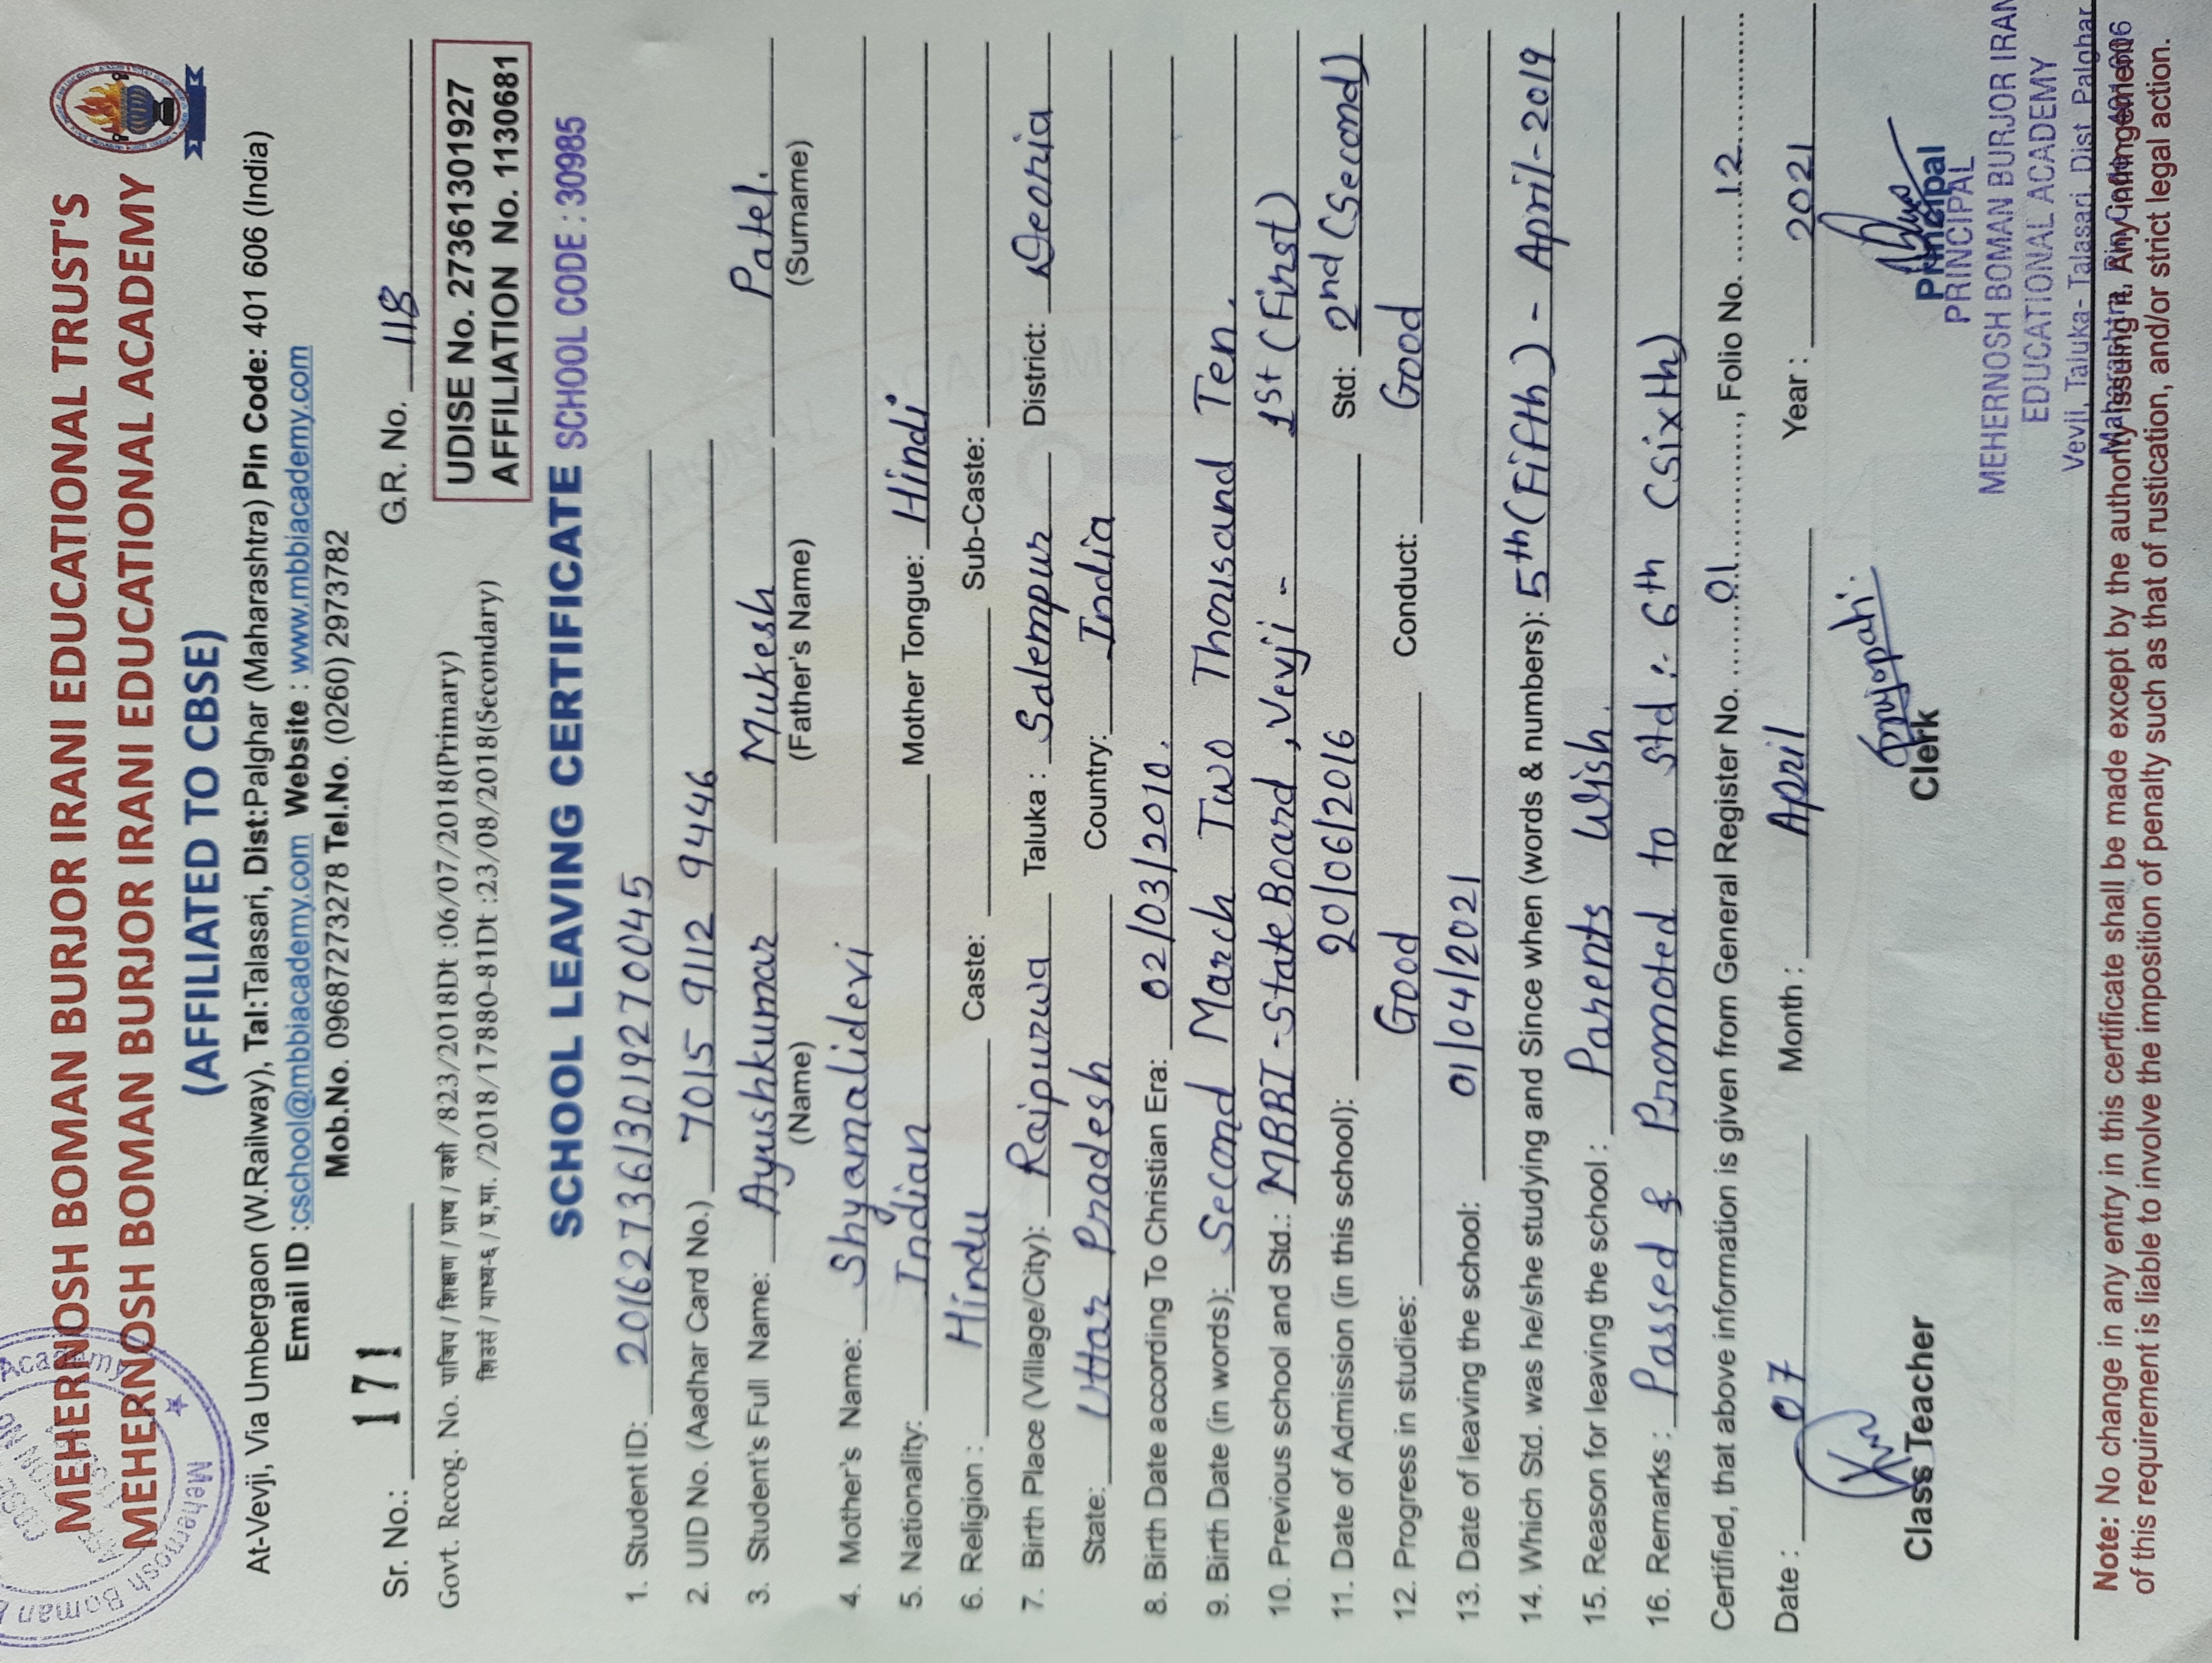 MEHERNOSH BOMAN BURJOR IRANI EDUCATIONAL TRUST'S
MEHERNOSH BOMAN BURJOR IRANI EDUCATIONAL ACADEMY
(AFFILIATED TO CBSE)
At-Vevji, Via Umbergaon (W.Railway), Tal:Talasari, Dist:Palghar (Maharashtra) Pin Code: 401 606 (India)
Email ID :cschool@mbbiacademy.com Website : www.mbbiacademy.com
Mob.No. 09687273278 Tel.No. (0260) 2973782
Sr. No.: 171 G.R. No. 118
Govt. Recog. No. पाजिप / शिक्षण / प्राथ / वशी /823/2018Dt :06/07/2018(Primary)
शिउसं / माध्य-६ / प्र,मा. /2018/17880-81Dt :23/08/2018(Secondary)
UDISE No. 27361301927
AFFILIATION No. 1130681
SCHOOL LEAVING CERTIFICATE SCHOOL CODE : 30985
1. Student ID: 2016273613019270045
2. UID No. (Aadhar Card No.) 7015 9112 9446
3. Student's Full Name: Ayushkumar Mukesh Patel.
(Name) (Father's Name) (Surname)
4. Mother's Name: Shyamalidevi
5. Nationality: Indian Mother Tongue: Hindi
6. Religion : Hindu Caste: Sub-Caste:
7. Birth Place (Village/City): Raipurwa Taluka : Salempur District: Deoria
State: Uttar Pradesh Country: India
8. Birth Date according To Christian Era: 02/03/2010.
9. Birth Date (in words): Second March Two Thousand Ten.
10. Previous school and Std.: MBBI - State Board, Vevji - 1st (First)
11. Date of Admission (in this school): 20/06/2016 Std: 2nd (Second)
12. Progress in studies: Good Conduct: Good
13. Date of leaving the school: 01/04/2021
14. Which Std. was he/she studying and Since when (words & numbers): 5th (Fifth) - April - 2019
15. Reason for leaving the school : Parents Wish.
16. Remarks : Passed & Promoted to std :- 6th (sixth)
Certified, that above information is given from General Register No. 01, Folio No. 12
Date : 07 Month : April Year : 2021
Class Teacher Clerk Principal
PRINCIPAL
MEHERNOSH BOMAN BURJOR IRANI
EDUCATIONAL ACADEMY
Vevji, Taluka- Talasari, Dist Palghar
Note: No change in any entry in this certificate shall be made except by the authority issuing it. Any infringement
of this requirement is liable to involve the imposition of penalty such as that of rustication, and/or strict legal action.